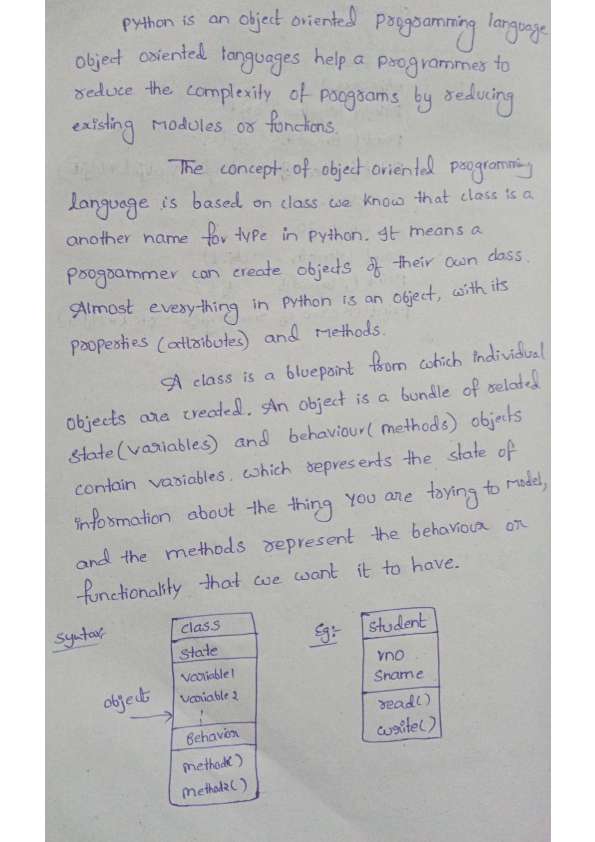 Python is an object oriented programming language
object oriented languages help a programmer to
reduce the complexity of programs by reducing
existing modules or functions.
The concept of object oriented programming
language is based on class we know that class is a
another name for type in python. It means a
programmer can create objects of their own class.
Almost everything in Python is an object, with its
properties (attributes) and methods.
A class is a blueprint from which individual
objects are created. An object is a bundle of related
state (variables) and behaviour (methods) objects
contain variables. which represents the state of
information about the thing you are trying to model,
and the methods represent the behaviour or
functionality that we want it to have.
Syntax
object
class
state
variable1
variable2
Behavior
method1()
method2()
Eg:-
Student
rno
Sname
read()
write()